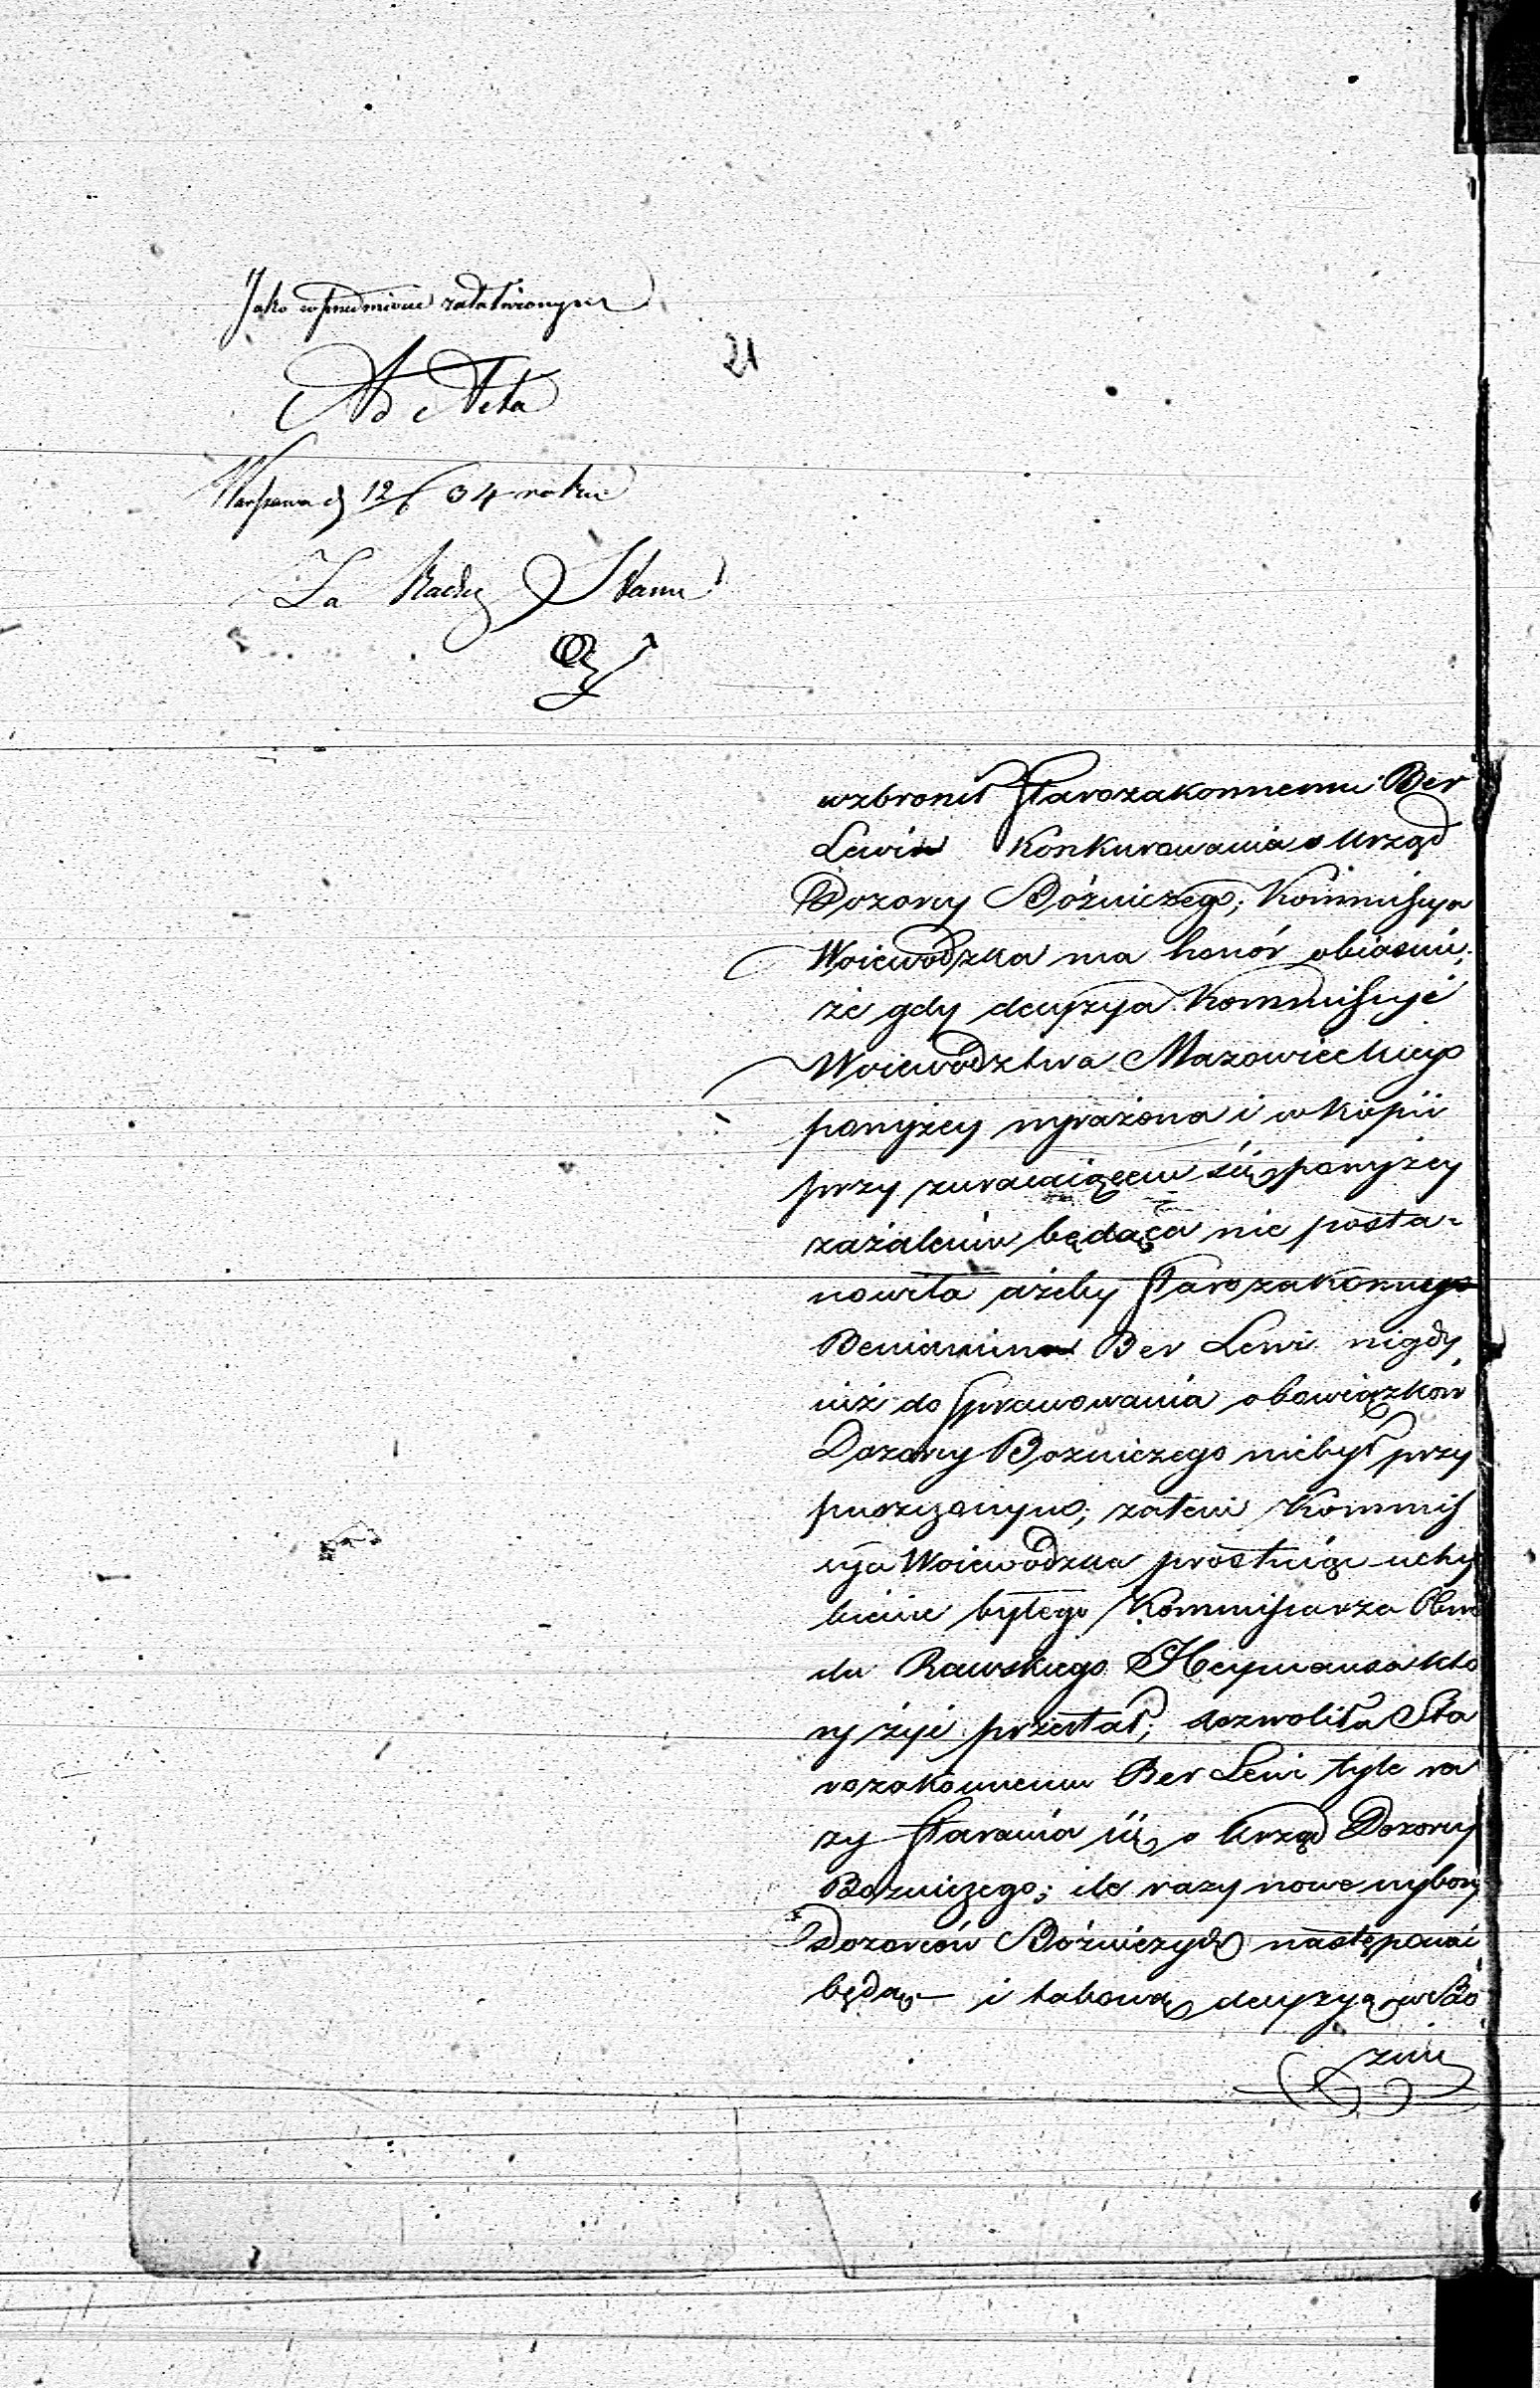 Jako w przedmiocie załatwionym
21
Ad Acta
Warszawa d 12/6 34 roku
Za Radcę Stanu
wzbronił Starozakonnemu Ber
Lewin Konkurowania o Urząd
Dozoru Bóżniczego; Kommissya
Woiewódzka ma honór obiasnić,
że gdy decyzya Kommissyi
Woiewództwa Mazowieckiego
powyżey wyrażona i w kopii
przy zwracaiącem się powyżey
zażaleniu będąca nie posta-
nowiła ażeby Starozakonnego
Beniamina Ber Lewi nigdy
iuż do sprawowania obowiązków
Dozoru Bożniczego niebył przy
puszczonym; zatem Kommis
sya Woiewódzka prostuiąc uchy
bienie byłego Kommissarza Obwo
du Rawskiego Heymansa któ
ry żyć przestał; dozwoliła Sta
rozakonnemu Ber Lewi tyle ra
zy starania się o Urząd Dozoru
Bożniczego; ile razy nowe wybory
Dozorców Bóżniczych następować
będą — i takową decyzyą w Bó
zniu